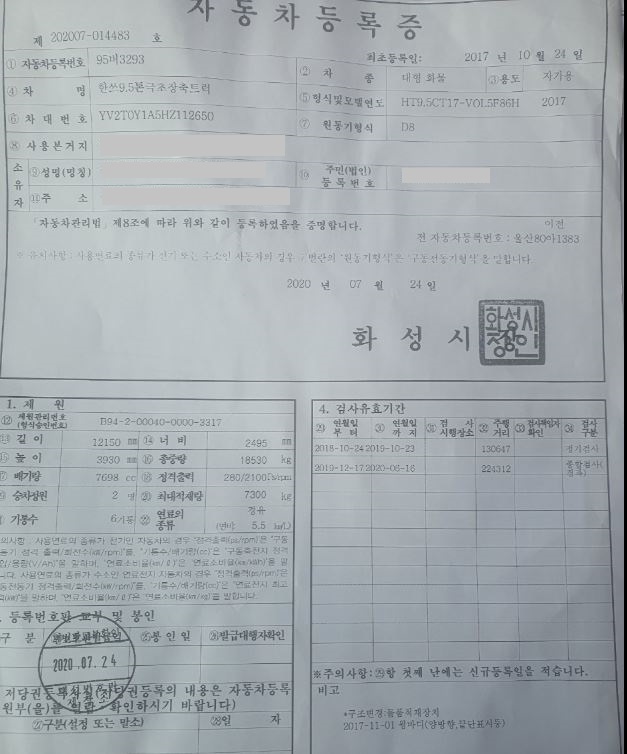 자동차등록증
제 202007-014483 호
최초등록일: 2017 년 10 월 24 일
① 자동차등록번호 95머3293 ② 차 종 대형 화물 ③용도 자가용
④ 차 명 한쓰9.5톤극초장축트럭 ⑤ 형식및모델연도 HT9.5CT17-VOL5F86H 2017
⑥ 차 대 번 호 YV2T0Y1A5HZ112650 ⑦ 원동기형식 D8
⑧ 사용본거지
소유자 ⑨성명(명칭) ⑩ 주민(법인)등록번호
⑪주 소
「자동차관리법」제8조에 따라 위와 같이 등록하였음을 증명합니다. 이전
전 자동차등록번호 : 울산80아1383
※ 유의사항 : 사용연료의 종류가 전기 또는 수소인 자동차의 경우 구분란의 '원동기형식'은 '구동전동기형식'을 말합니다.
2020 년 07 월 24 일
화 성 시 장
화성시
장인
1. 제 원
⑫ 제원관리번호(형식승인번호) B94-2-00040-0000-3317
⑬ 길 이 12150 mm ⑭ 너 비 2495 mm
⑮ 높 이 3930 mm ⑯ 총중량 18530 kg
⑰ 배기량 7698 cc ⑱ 정격출력 280/2100 Ps/rpm
승차정원 2 명 ⑳ 최대적재량 7300 kg
기통수 6기통 ㉒ 연료의 종류 경유
(연비: 5.5 km/L)
의사항 : 사용연료의 종류가 전기인 자동차의 경우 "정격출력(ps/rpm)"은 "구동
동기 정격 출력/회전수(kw/rpm)"를, "기통수/배기량(cc)"은 "구동축전지 정격
압/용량(V/Ah)"을 말하며, "연료소비율(km/ℓ)"은 "연료소비율(km/kwh)"을 말
니다. 사용연료의 종류가 수소인 연료전지 자동차의 경우 "정격출력(ps/rpm)"은
동전동기 정격출력/회전수(kw/rpm)"를, "기통수/배기량(cc)"은 "연료전지 최고
(kw)"을 말하며, "연료소비율(km/ℓ)"은 "연료소비율(km/kg)"을 말합니다.
등록번호판 교부 및 봉인
구 분 ㉕봉 인 일 ㉖발급대행자확인
2020.07.24
저당권등록사실(저당권등록의 내용은 자동차등록
원부(을)를 열람·확인하시기 바랍니다)
㉗구분(설정 또는 말소) ㉘일 자
4. 검사유효기간
㉙ 연월일부터 ㉚ 연월일까지 ㉛ 검 사 시행장소 ㉜ 주행거리 ㉝ 검사책임자확인 ㉞ 검사구분
2018-10-24 2019-10-23 130647 정기검사
2019-12-17 2020-06-16 224312 종합검사(경과)
※주의사항:㉙항 첫째 난에는 신규등록일을 적습니다.
비고
*구조변경:물품적재장치
2017-11-01 윙바디(양방향,문단표시등)